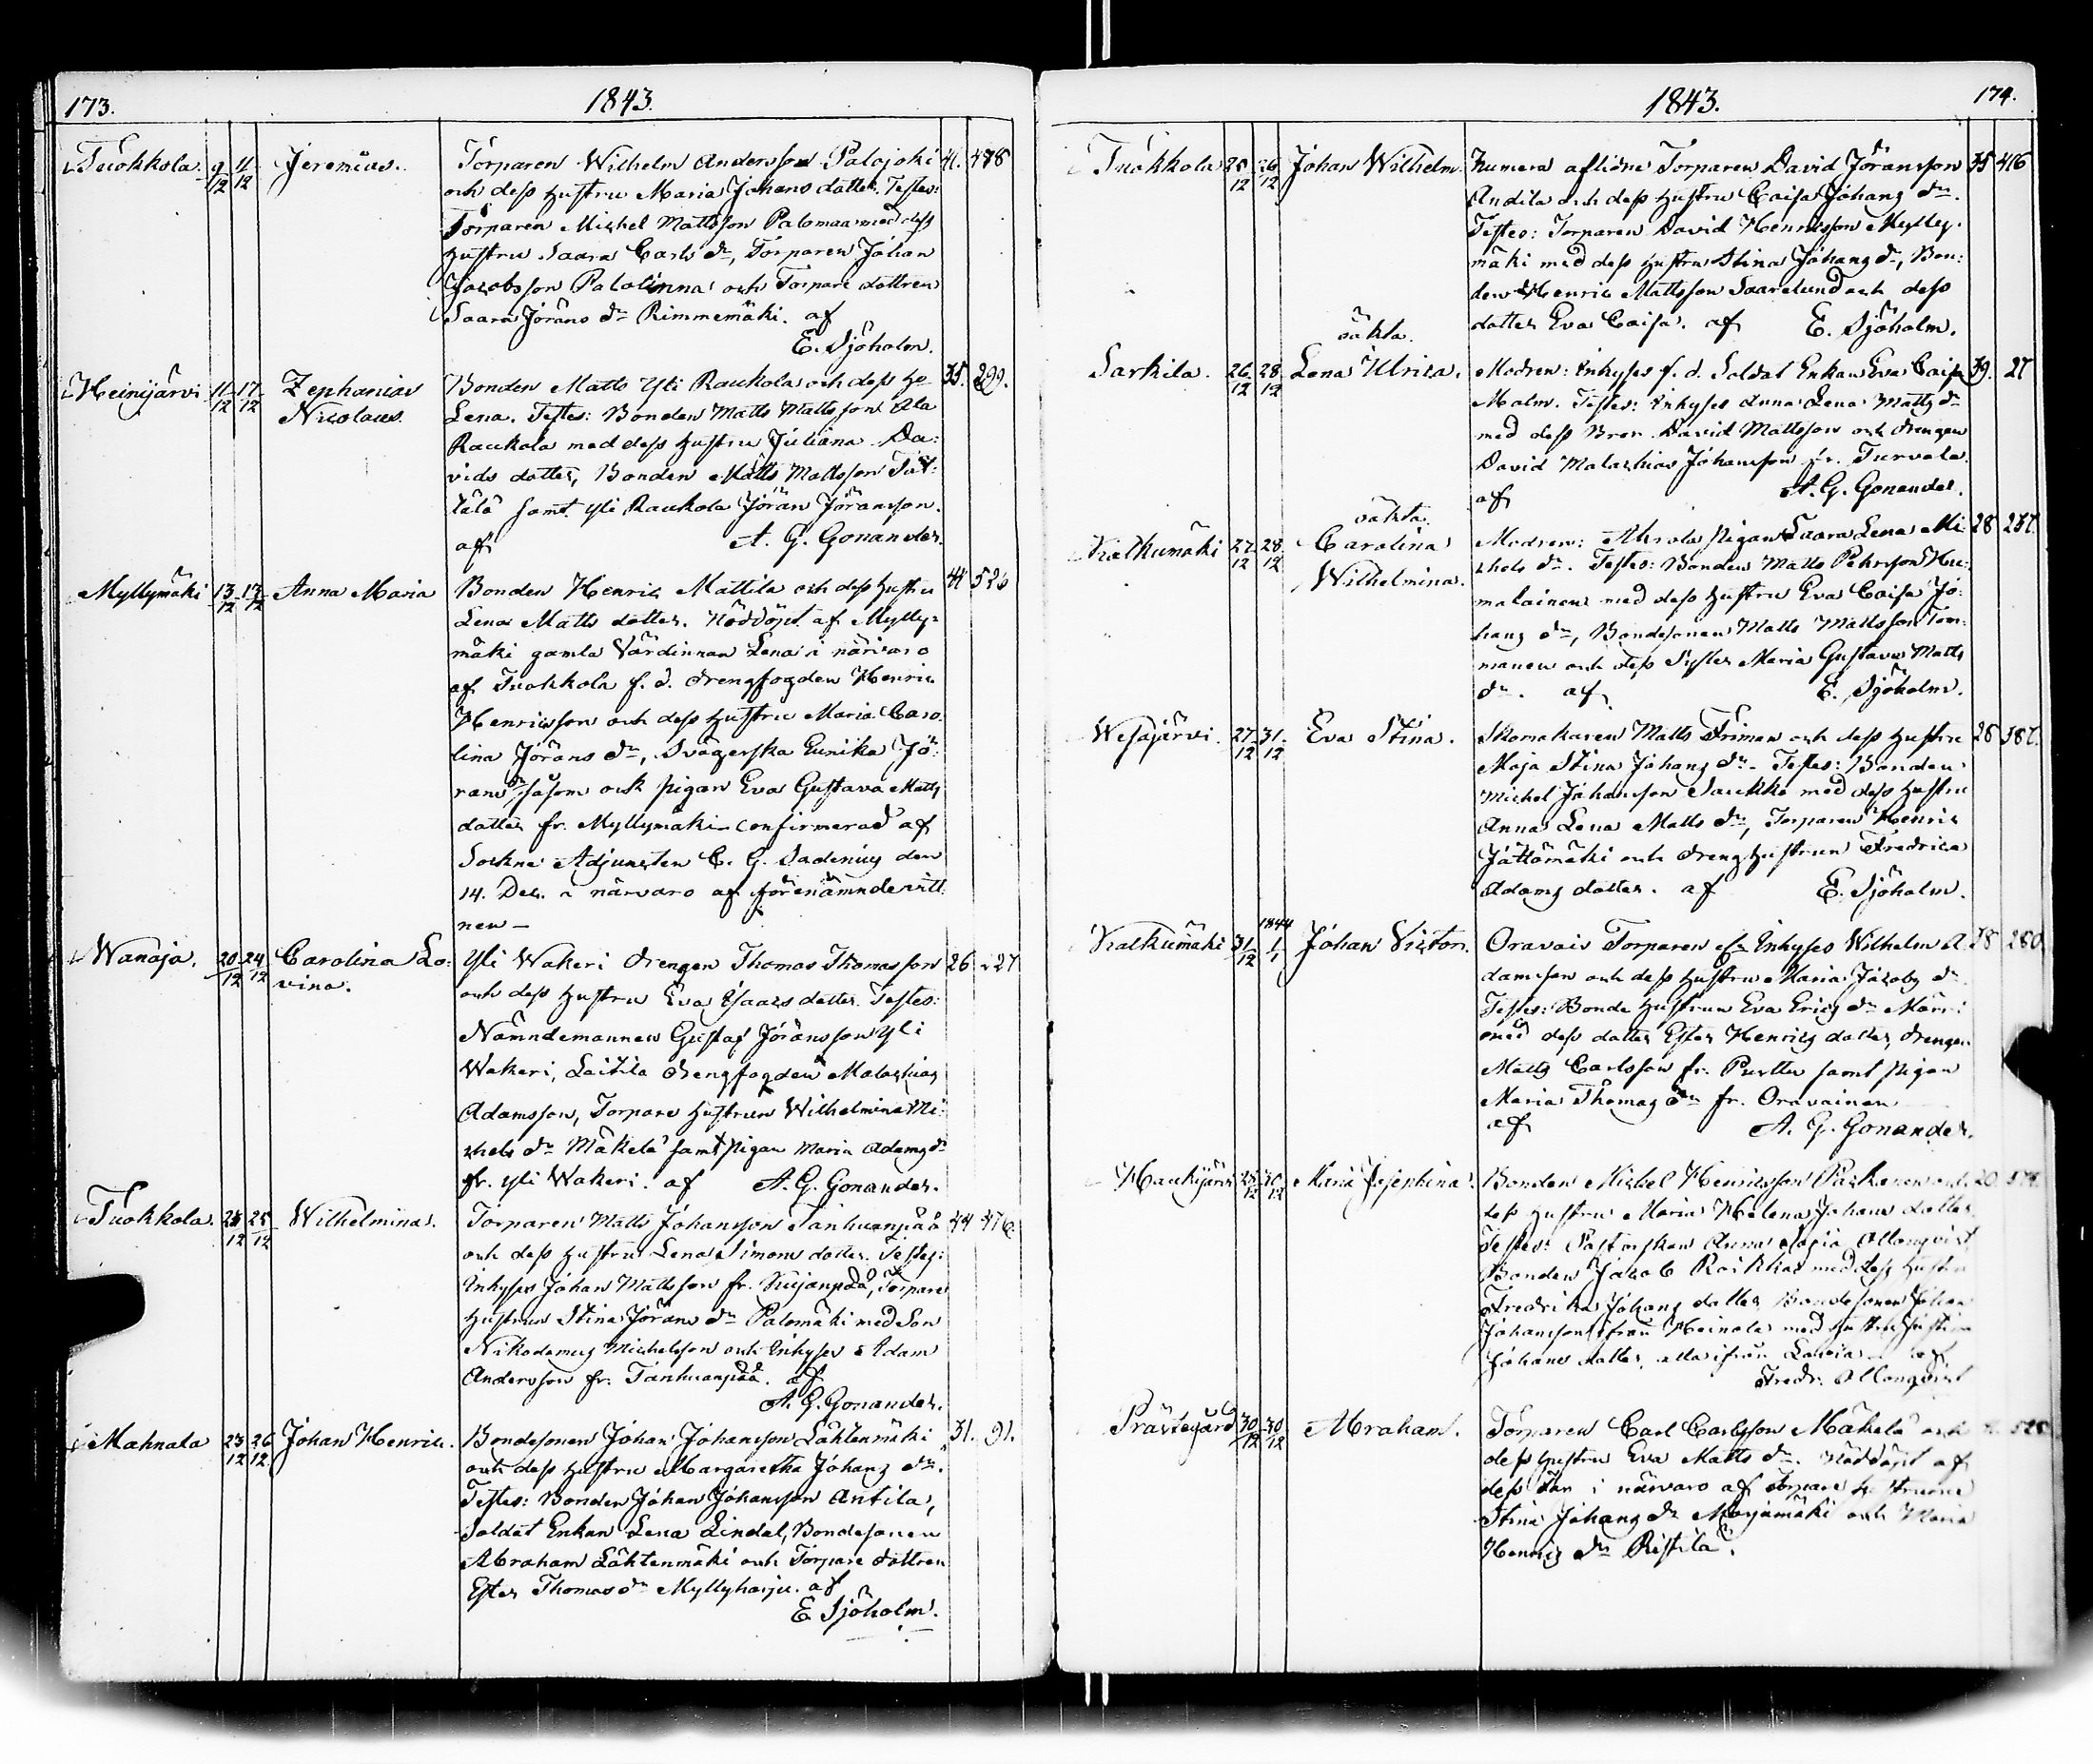 173. 1843.
Tuokkola. 9/12 11/12 Jeremias. Torparen Wilhelm Andersson Palojoki 41. 478
och dess hustru Maria Johans dotter. Testes:
Torparen Michel Mattsson Palomaa med dess
hustru Saara Carls dr, Torparen Johan
Jacobsson Palolinna och Torpare dottren
Saara Jörans dr Rimmemäki. af
E. Sjöholm.
Heinijärvi 11/12 17/12 Zephanias Bonden Matts Yli Raukola och dess hu 35. 299.
Nicolaus. Lena. Testes: Bonden Matts Mattsson Ala
Raukola med dess hustru Juliana Da:
vids dotter, Bonden Matts Mattsson Tät:
tälä samt Yli Raukola Jöran Jöransson.
af A. G. Gonander.
Myllymäki 13/12 17/12 Anna Maria Bonden Henric Mattila och dess hustru 44 526
Lena Matts dotter. Nöddöpt af Mylly:
mäki gamla Värdinnan Lena i närvaro
af Tuokkola f. d. drengfogden Henric
Henricsson och dess hustru Maria Caro
lina Jörans dr, Svägerska Eunika Jö:
rans dr såsom ock pigan Eva Gustava Matts
dotter fr. Myllymäki confirmerad af
Sockne Adjuncten C. G. Sadenius den
14. Dec. i närvaro af förenämnde vitt
nen —
Wanaja. 20/12 24/12 Carolina Lo: Yli Wakeri drengen Thomas Thomasson 26 227
vina. och dess hustru Eva Isaacs dotter. Testes:
Nämndemannen Gustaf Jöransson Yli
Wakeri, Laitila drengfogden Malachias
Adamsson, Torpare hustrun Wilhelmina Mi:
chels dr Mäkelä samt pigan Maria Adams dr
fr. Yli Wakeri. af A. G. Gonander.
Tuokkola. 25/12 Wilhelmina. Torparen Matts Johansson Tanhuanpää 44 476.
och dess hustru Lena Simons dotter. Testes:
Inhyses Johan Mattsson fr. Kujanpää, Torpare
hustrun Stina Jörans dr Palomäki med Son
Nikodemus Michelsson och Inhyses Adam
Andersson fr. Tanhuanpää. af
A. G. Gonander.
Mahnala 23/12 26/12 Johan Henric. Bondesonen Johan Johansson Lähtenmäki 31. 91.
och dess hustru Margaretha Johans dr.
Testes: Bonden Johan Johansson Antila,
Soldat Enkan Lena Lindal, Bondesonen
Abraham Lähtenmäki och Torpare dottren
Ester Thomas dr Myllyharju. af
E Sjöholm.
1843. 174.
Tuokkola 25/12 26/12 Johan Wilhelm. Numera aflidne Torparen David Jöransson 35 416
Andila och dess hustru Caisa Johans dr.
Testes: Torparen David Henricsson Mylly:
mäki med dess hustru Stina Johans dr, Bon:
den Henric Mattsson Saarelund och dess
dotter Eva Caisa. af E. Sjöholm.
oäkta.
Sarkila. 26/12 28/12 Lena Ulrica. Modren: Inhyses f. d. Soldat Enkan Eva Caisa 39. 27
Malm. Testes: Inhyses Anna Lena Matts dr
med dess Bror David Mattsson och drengen
David Malachias Johansson fr. Turvala.
af A. G. Gonander.
oäkta.
Kalkumäki 27/12 28/12 Carolina Modren: Ahrola pigan Saara Lena Mi 28 257.
Wilhelmina. chels dr. Testes: Bonden Matts Pehrsson Hu:
malainen med dess hustru Eva Caisa Jo:
hans dr, Bondesonen Matts Mattsson Tom:
manen och dess Syster Maria Gustava Matts
dr. af E. Sjöholm.
Wesajärvi. 27/12 31/12 Eva Stina. Skomakaren Matts Friman och dess hustru 28 387.
Maja Stina Johans dr. Testes: Bonden
Michel Johansson Saukko med dess hustru
Anna Lena Matts dr, Torparen Henric
Jättömäki och dreng hustrun Fredrica
Adams dotter. af E. Sjöholm.
Kalkumäki 31/12 1844 1/1 Johan Victor. Oravais Torparen Inhyses Wilhelm A 38 260
damsson och dess hustru Maria Jacobs dr.
Testes: Bonde hustrun Eva Erics dr Märri
med dess dotter Ester Henrics dotter, drengen
Matts Carlsson fr. Purttu samt pigan
Maria Thomas dr fr. Oravainen
af A. G. Gonander.
Haukijärvi 30/12 Maria Josephina. Bonden Michel Henricsson Paskanen och
dess hustru Maria Helena Johans dotter
Testes: Pastorskan Anna Sofia Allonqvist
Bonden Jacob Roikka med dess hustru
Fredrika Johans dotter Bondesonen Johan
Johansson ifrån Heinola med hustru
Johans dotter, alla ifrån Lavia af
Fredr. Allonqvist
Prästegård 30/12 30/12 Abraham. Torparen Carl Carlsson Mäkelä och
dess hustru Eva Matts dr. Nöddöpt af
dess Far i närvaro af torpare hustrurne
Stina Johans dr Marjamäki och Maria
Henrics dr Ristila.